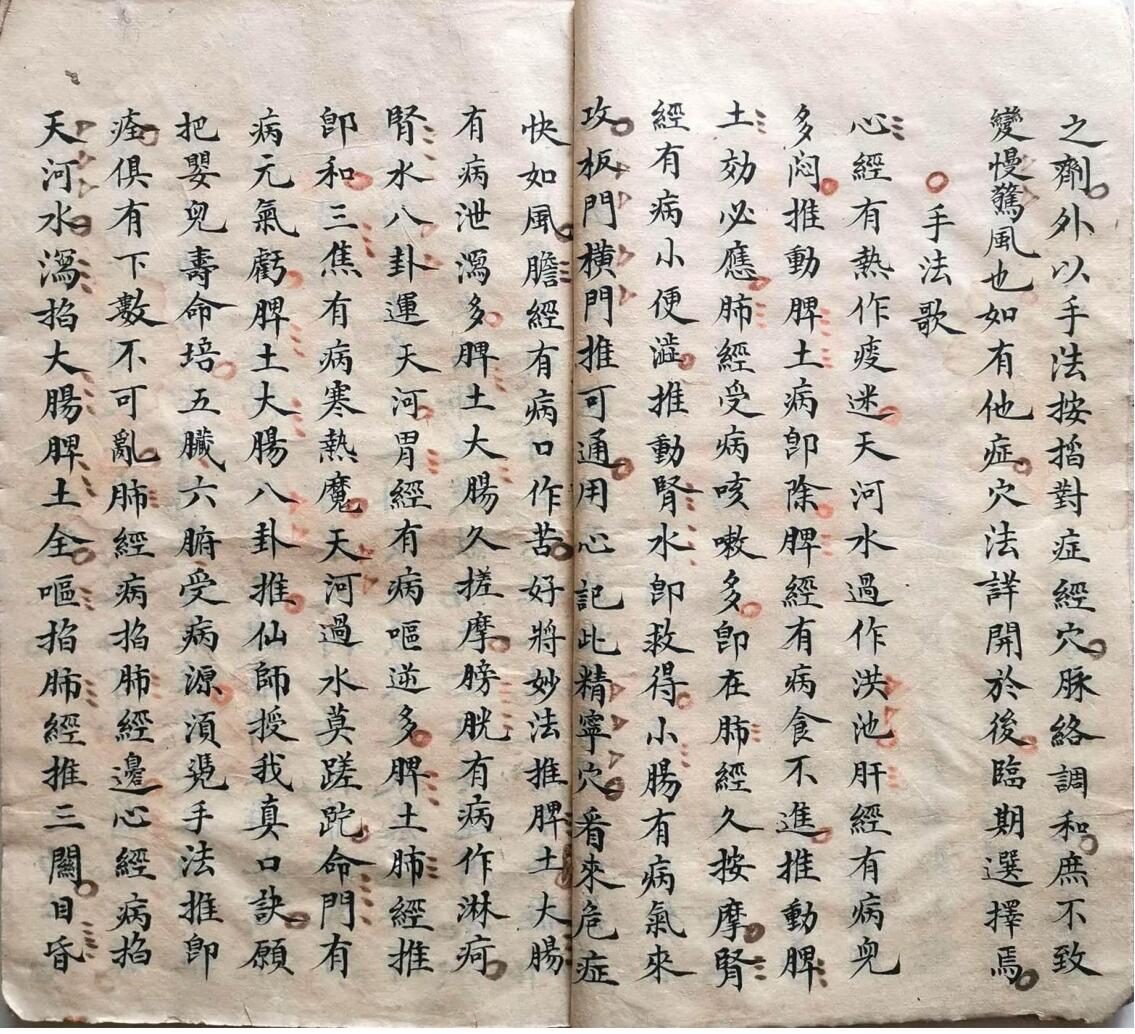 之劑外以手法按掐對症經穴脉絡調和庶不致
變慢驚風也如有他症穴法詳開於後臨期選擇焉
手法歌
心經有熱作痰迷天河水過作洪池肝經有病兒
多悶推動脾土病卽除脾經有病食不進推動脾
土效必應肺經受病咳嗽多卽在肺經久按摩腎
經有病小便澁推動腎水卽救得小腸有病氣來
攻板門橫門推可通用心記此精寧穴看來危症
快如風膽經有病口作苦好將妙法推脾土大腸
有病泄瀉多脾土大腸久搓摩膀胱有病作淋疴
腎水八卦運天河胃經有病嘔逆多脾土肺經推
卽和三焦有病寒熱魔天河過水莫蹉跎命門有
病元氣虧脾土大腸八卦推仙師授我真口訣願
把嬰兒壽命培五臟六腑受病源湏凴手法推卽
痊俱有下數不可亂肺經病掐肺經邊心經病掐
天河水瀉掐大腸脾土全嘔掐肺經推三關目昏